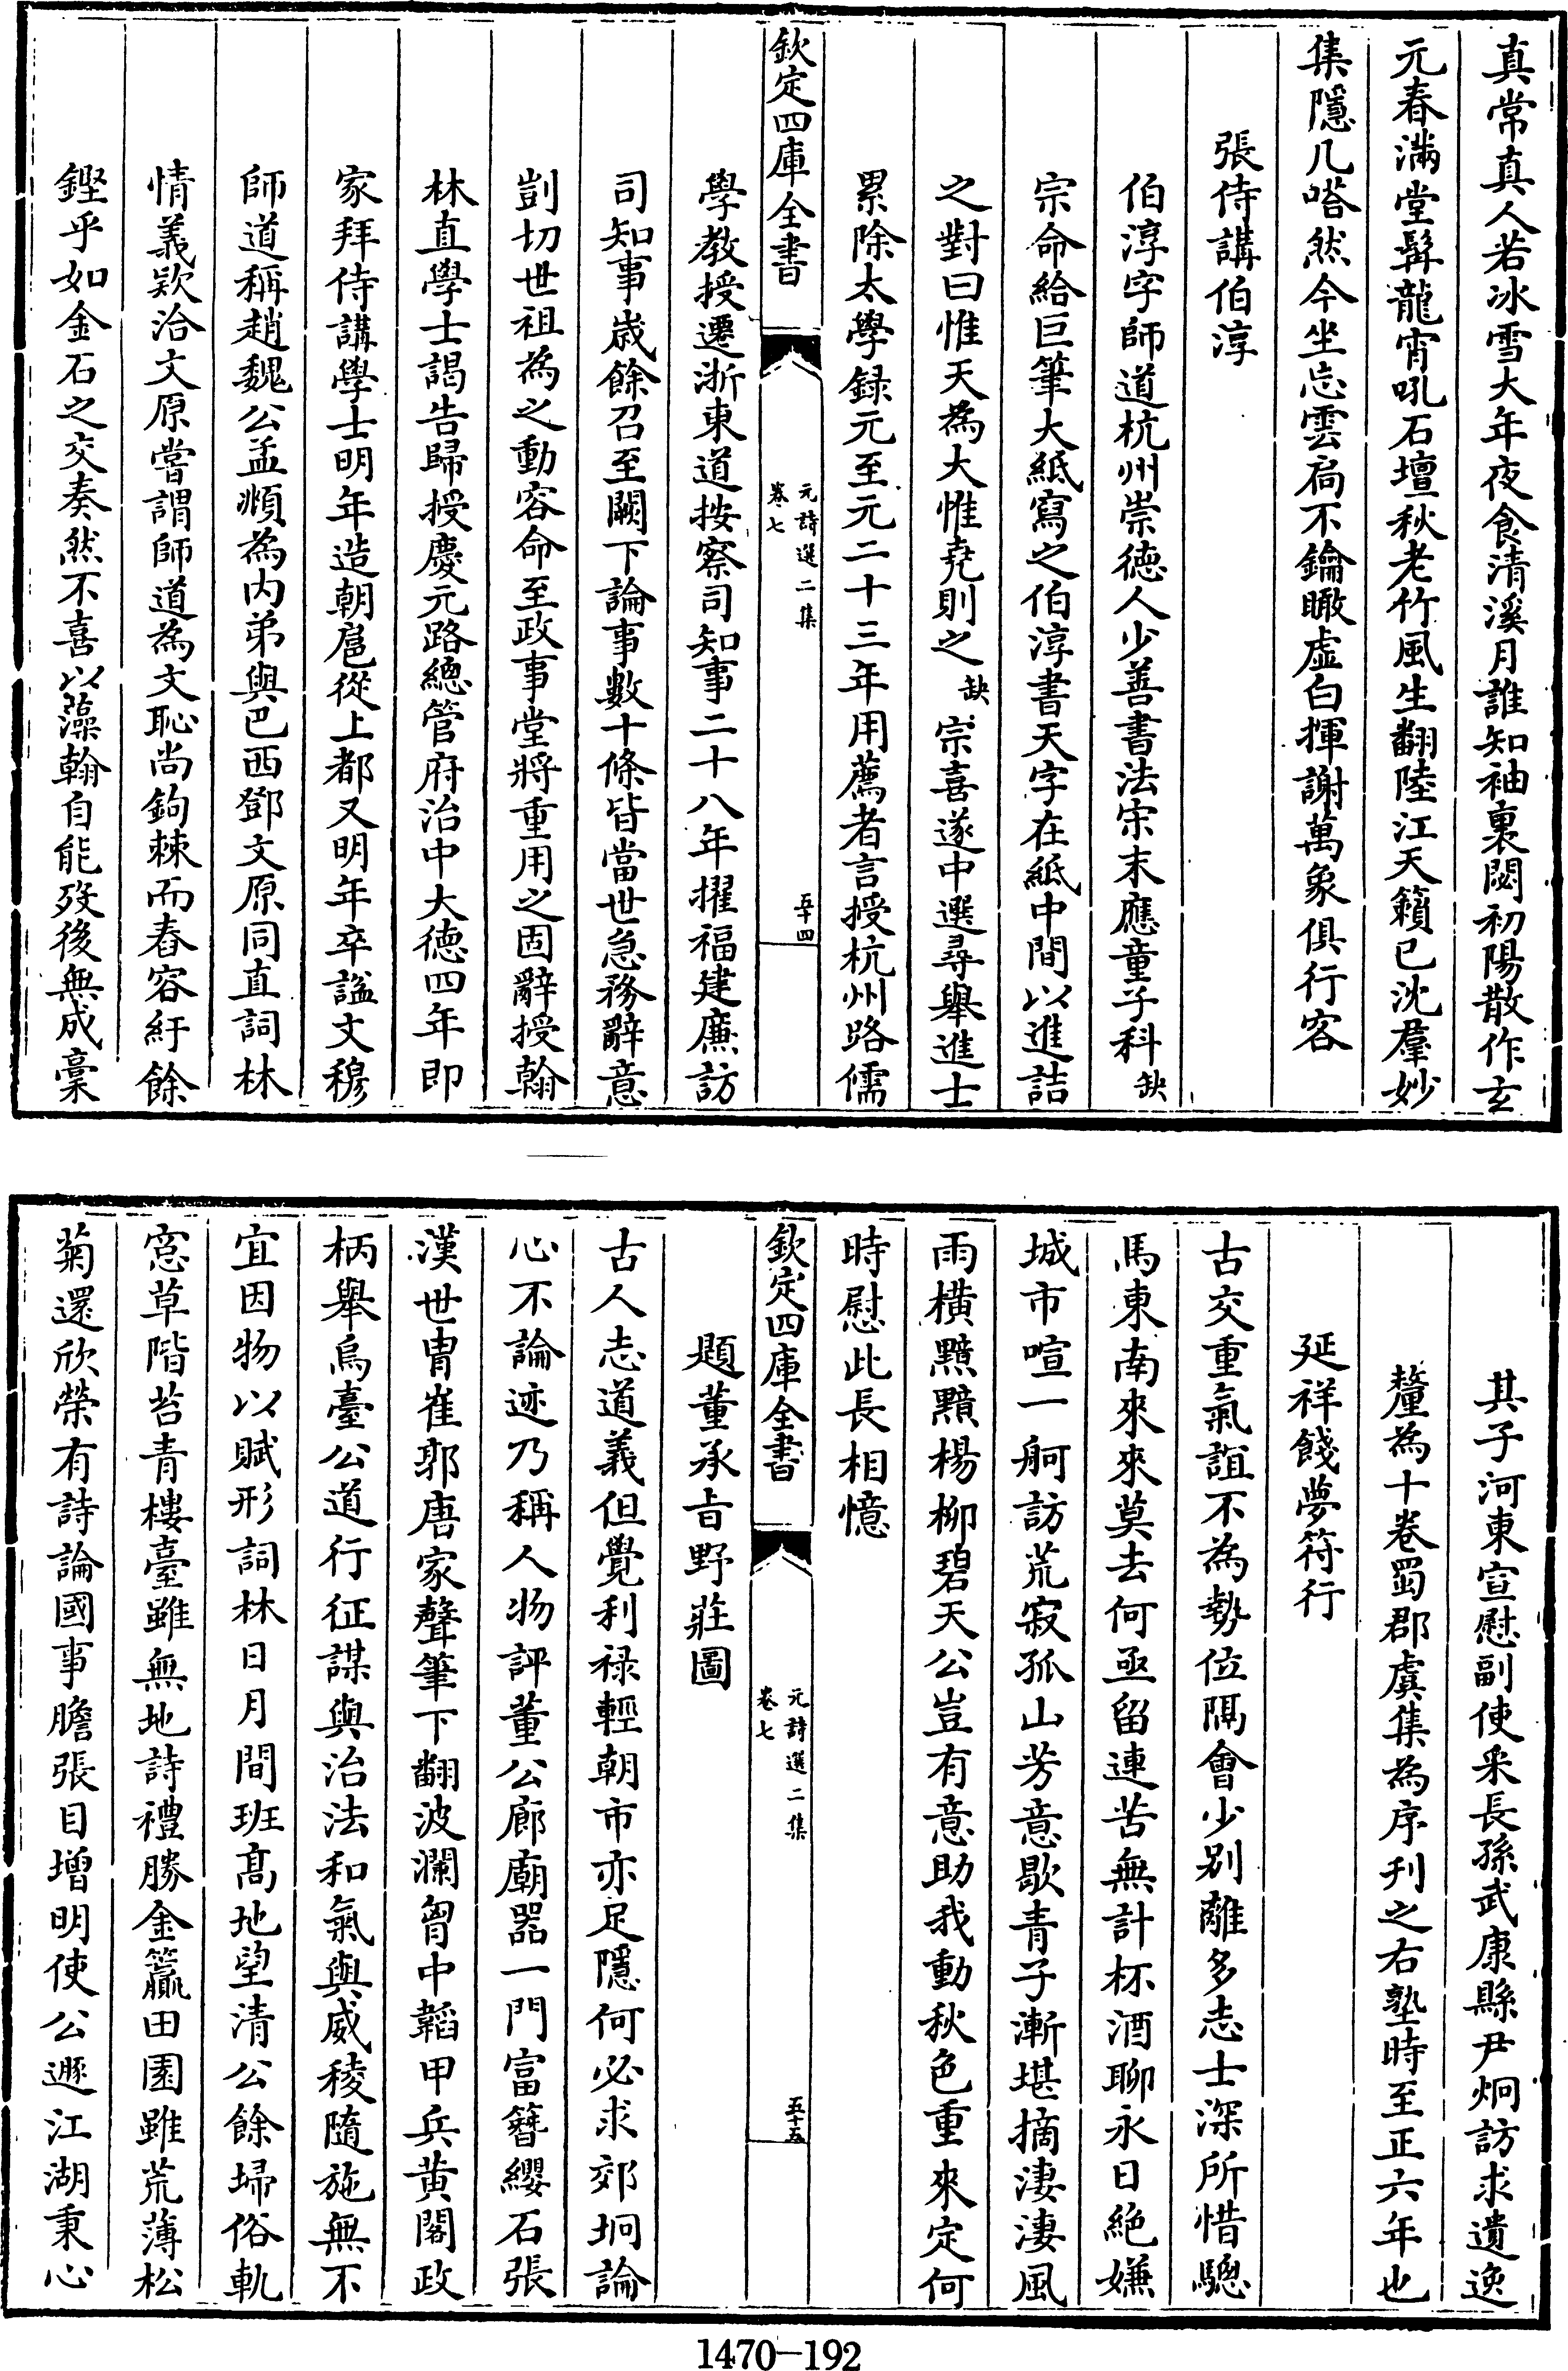 真常真人若冰雪大年夜食清溪月誰知袖裏閟初陽散作玄
元春滿堂髯龍宵吼石壇秋老竹風生翻陸江天籟已沈羣妙
集隱几嗒然今坐忘雲扃不鑰瞰虛白揮謝萬象俱行客
張侍講伯淳
伯淳字師道杭州崇德人少善書法宋末應童子科缺
宗命給巨筆大紙寫之伯淳書天字在紙中間以進詰
之對曰惟天為大惟堯則之缺宗喜遂中選尋舉進士
累除太學録元至元二十三年用薦者言授杭州路儒
欽定四庫全書
元詩選二集
卷七
五十四
學教授遷浙東道按察司知事二十八年擢福建廉訪
司知事歳餘召至闕下論事數十條皆當世急務辭意
剴切世祖為之動容命至政事堂將重用之固辭授翰
林直學士謁告歸授慶元路總管府治中大德四年即
家拜侍講學士明年造朝扈從上都又明年卒諡文穆
師道稱趙魏公孟頫為内弟與巴西鄧文原同直詞林
情義欵洽文原嘗謂師道為文恥尚鉤棘而舂容紆餘
鏗乎如金石之交奏然不喜以藻翰自能歿後無成稾
其子河東宣慰副使采長孫武康縣尹炯訪求遺逸
釐為十卷蜀郡虞集為序刋之右塾時至正六年也
延祥餞夢符行
古交重氣誼不為勢位隅會少别離多志士深所惜驄
馬東南來來莫去何亟留連苦無計杯酒聊永日絶嫌
城市喧一舸訪荒寂孤山芳意歇青子漸堪摘淒淒風
雨橫黯黯楊柳碧天公豈有意助我動秋色重來定何
時慰此長相憶
欽定四庫全書
元詩選二集
卷七
五十五
題董承旨野莊圖
古人志道義但覺利禄輕朝市亦足隱何必求郊坰論
心不論迹乃稱人物評董公廊廟器一門富簪纓石張
漢世胄崔郭唐家聲筆下翻波瀾胷中韜甲兵黄閣政
柄舉烏臺公道行征謀與治法和氣與威稜隨施無不
宜因物以賦形詞林日月間班髙地望清公餘埽俗軌
窓草階苔青樓臺雖無地詩禮勝金籯田園雖荒薄松
菊還欣榮有詩論國事膽張目增明使公遯江湖秉心
1470-192